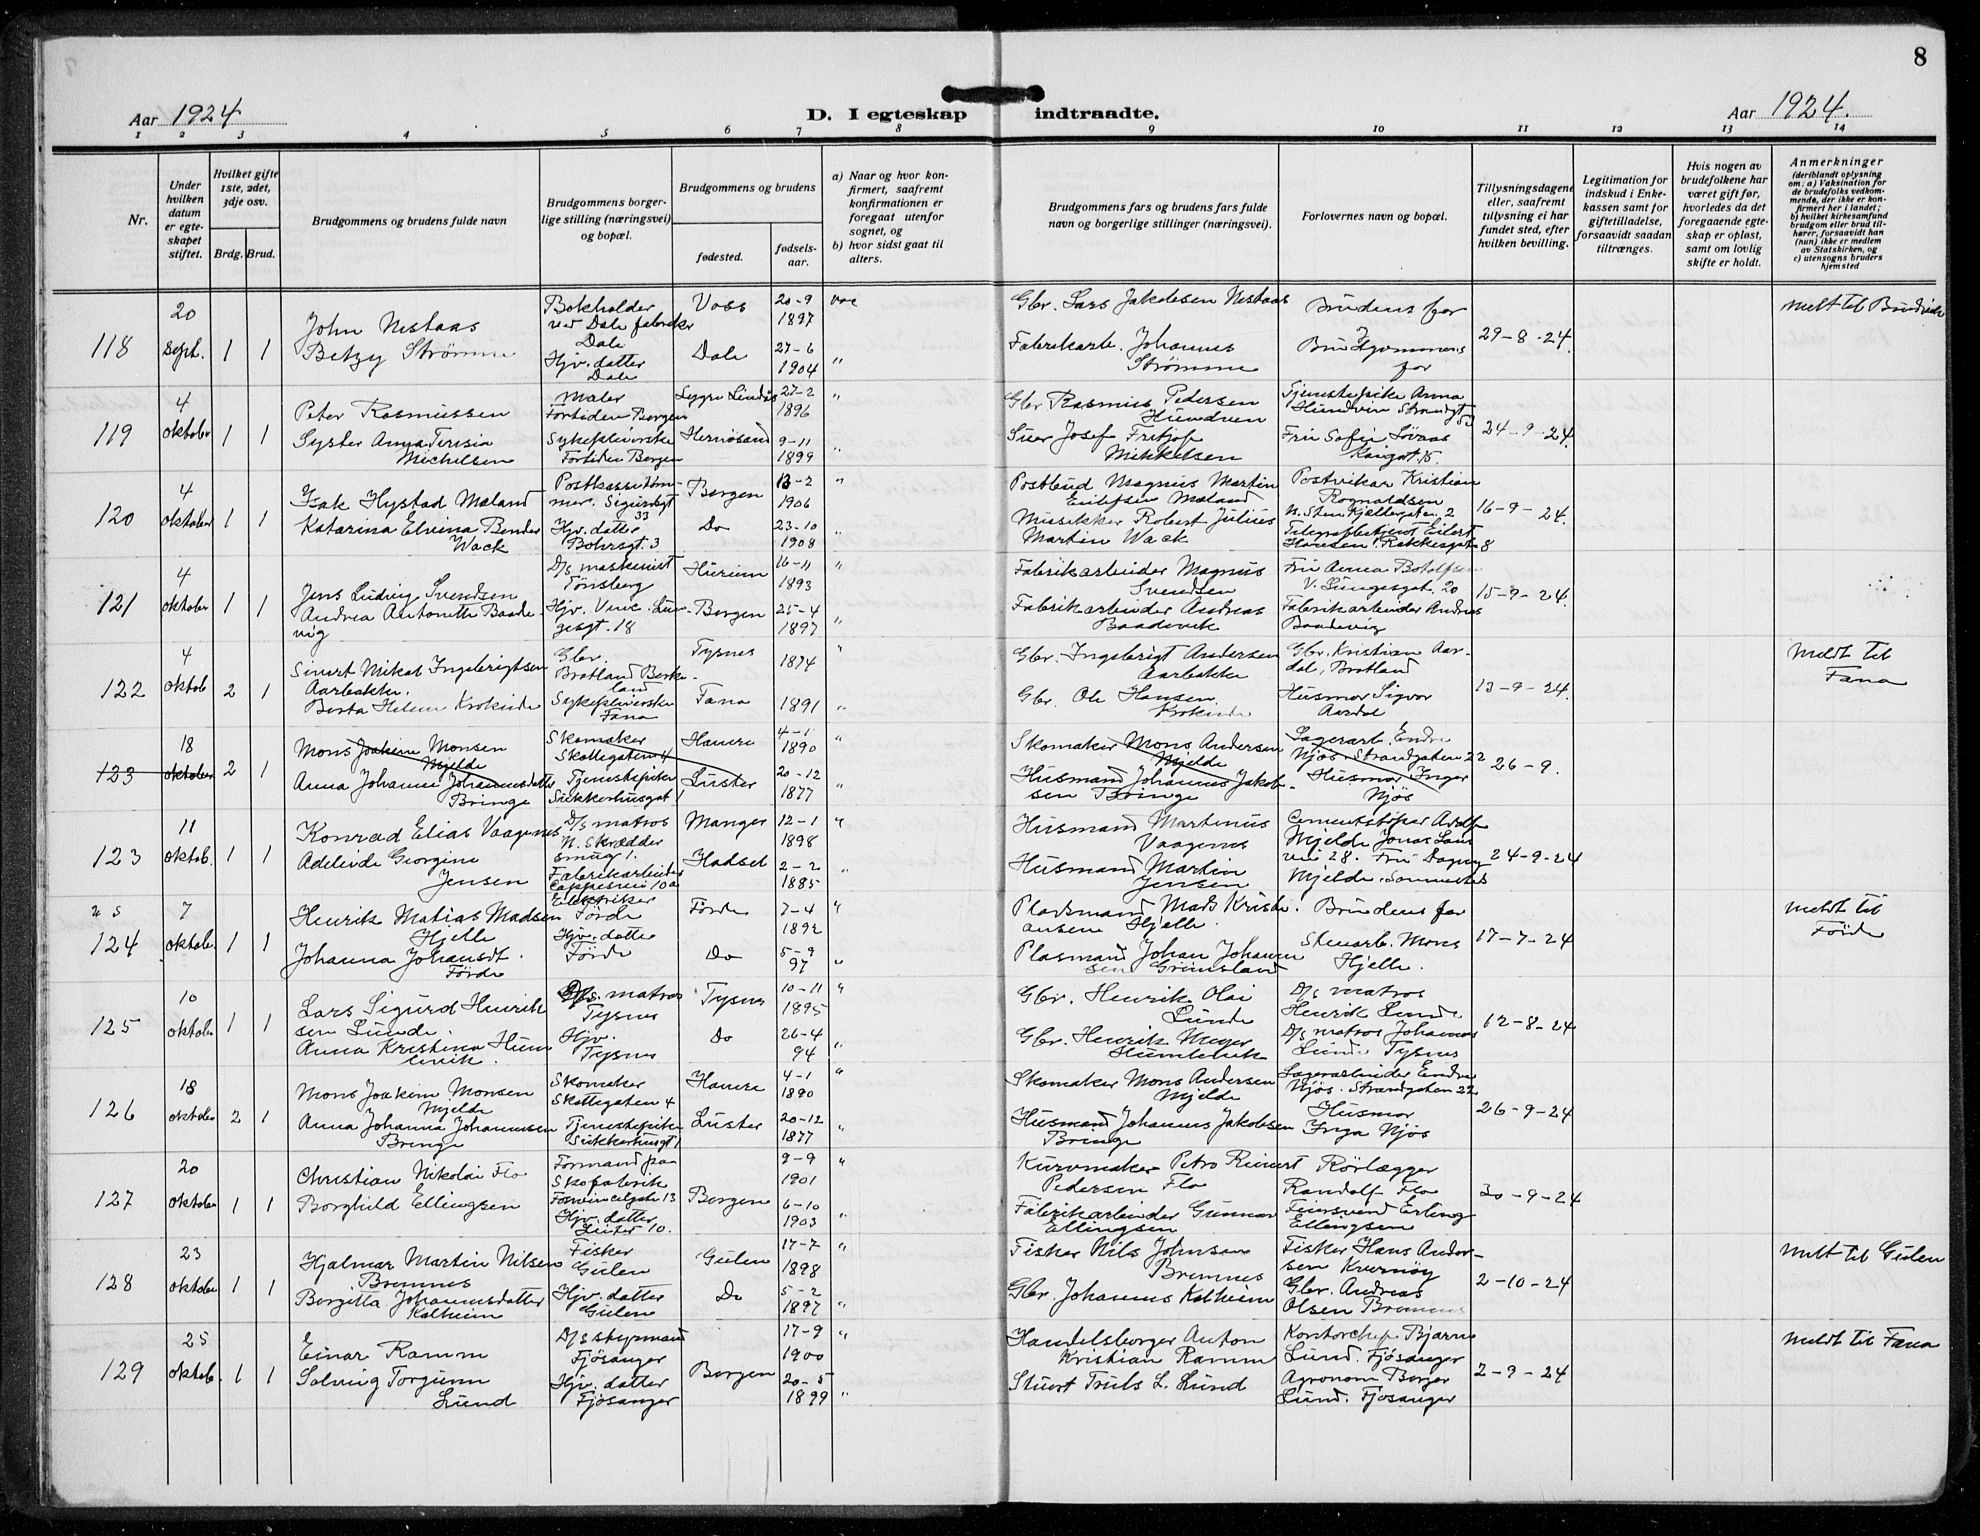 8
Aar 1924
D. I egteskap indtraadte.
Aar 1924.
1 2 3 4 5 6 7 8 9 10 11 12 13 14
Nr.
Under hvilken datum er egteskapet stiftet.
Hvilket gifte 1ste, 2det, 3dje osv.
Brdg. Brud.
Brudgommens og brudens fulde navn
Brudgommens borgerlige stilling (næringsvei) og bopæl.
Brudgommens og brudens
fødested.
fødselsaar.
a) Naar og hvor konfirmert, saafremt konfirmationen er foregaat utenfor sognet, og
b) hvor sidst gaat til alters.
Brudgommens fars og brudens fars fulde navn og borgerlige stillinger (næringsvei).
Forlovernes navn og bopæl.
Tillysningsdagene eller, saafremt tillysning ei har fundet sted, efter hvilken bevilling.
Legitimation for indskud i Enkekassen samt for giftetilladelse, forsaavidt saadan tiltrænges.
Hvis nogen av brudefolkene har været gift før, hvorledes da det foregaaende egteskap er opløst, samt om lovlig skifte er holdt.
Anmerkninger
(deriblandt oplysning om: a) Vaksination for de brudefolks vedkommende, der ikke er konfirmert her i landet; b) hvilket kirkesamfund brudgom eller brud tilhører, forsaavidt han (hun) ikke er medlem av Statskirken, og c) utensogns bruders hjemsted
118 20 sept. 1 1
John Nestaas
Betzy Strømme
Bokholder
ved Dale fabrikker
Dale
Hjv. datter
Dale
Voss
Dale
20-9
1897
27-6
1904
Gbr. Lars Jakobsen Nestaas
Fabrikarb. Johannes
Strømme
Brudens far
Brudgommens
far
29-8-24.
119 4 oktober 1 1
Peter Rasmussen
Syster Anna Teresia
Michelsen
Maler
Fortiden Bergen
Sykepleierske
Fortiden Bergen
Hernøsand
27-2
1896
9-11
1899
Gbr Rasmus Pedersen
Hundven
Josef Fritjof
Mikkelsen
Tjenestepike Anna
Hundvin Strandgt
53
Fru Sofie Løvaas
Kongsgt. 15.
24-9-24.
120 4 oktober 1 1
Isak Hystad Mæland
Katarina Elvina Bender
Wack
Postkassetøm-
mer. Sigurdsgt
33
Hjv. datter
Bohrsgt. 3
Bergen
Do
13-2
1906
23-10
1908
Postbud Magnus Martin
Eilefsen Mæland
Musikker Robert Julius
Martin Wack
Postvikar Kristian
Rognaldsen
N. Sten Kjellergaten 2
Telegrafbetjent Eilert
Hansen, Rakkesgate
8
16-9-24.
121 4 oktober 1 1
Jens Ludvig Svendsen
Andrea Antonette Baade-
vig
D/s maskinist
Tønsberg
Hjv. Vinc. Lun-
gesgt. 18
Hurum
Bergen
16-11
1893
25-4
1897
Fabrikarbeider Magnus
Svendsen
Fabrikarbeider Andreas
Baadevik
Fru Anna Botolfsen
V. Lungesgat. 20
Fabrikarbeider Andreas
Baadevig
15-9-24.
122 4 oktob 2 1
Sivert Mikal Ingebrigtsen
Aarbakke.
Berta Helene Krokeide
Gbr.
Bratland Berke-
land
Sykepleierske
Fana
Tysnes
Fana
1874
1891
Gbr. Ingebrigt Andersen
Aarbakke
Gbr. Ole Hansen
Krokeide
Gbr. Kristian Aar-
dal, Bratland
Husmor Sigvor
Aardal
13-9-24.
Meldt til
Fana
123 18 oktober 2 1
Mons Joakim Monsen
Mjelde
Anna Johanna Johannesdatter
Bringe
Skomaker
Skottegaten 4
Tjenestepike
Sukkerhusgat 1
Hamre
Luster
4-1
1890
20-12
1877
Skomaker Mons Andersen
Mjelde
Husmand Johannes Jakob-
sen Bringe
Lagerarb. Endre
Njøs Strandgaten 22
Husmor Inger
Njøs
26-9.
123 11 oktob. 1 1
Konrad Elias Vaagenes
Adeleide Georgine
Jensen
D/s matros
N. Skrædder
smug 1.
Fabrikarbeider
Manger
Hadsel
12-1
1898
2-2
1885
Husmand Martinus
Vaagenes
Husmand Martin
Jensen
Cementstøper Adolf
Mjelde Jonas Lies
vei 28. Fru Dagny
Mjelde.
24-9-24
124 7 oktob. 1 1
Henrik Matias Madsen
Hjelle
Johanna Johansdt.
Førde
Elektriker
Førde
Hjv. datter
Førde
Førde
Do
7-4
1892
5-9
97
Pladsmand Mads Kristi-
ansen Hjelle.
Plasmand Johan Johann
sen Grimsland
Brudens far
Stenarb. Mons
Hjelle.
17-7-24
Meldt til
Førde
125 10 oktober 1 1
Lars Sigurd Henrik
sen Lunde.
Anna Kristina Hum
levik.
D/s. matros
Tysnes
Hjv.
Tysnes
Tysnes
Do
10-11
1895
26-4
94
Gbr. Henrik Olai
Lunde
Gbr. Henrik Meyer
Humlevik
D/s matros
Henrik Lunde
D/s matros Johannes
Lunde Tysnes
12-8-24
126 18 oktober 2 1
Mons Joakim Monsen
Mjelde
Anna Johanna Johannesen
Bringe
Skomaker
Skottegaten 4
Tjenestepike
Sukkerhusgt 1
Hamre
Luster
4-1
1890
20-12
1877
Skomaker Mons Andersen
Mjelde
Husmand Johannes Jakobsen
Bringe
Lagerarbeider Endre
Njøs. Strandgaten 22
Husmor
Inga Njøs
26-9-24
127 20 oktober 1 1
Christian Nikolai Flo
Borghild Ellingsen
Formand paa
Skofabrik
Hjv. datter
Bergen
9-9
1901
6-10
1903
Kurvmaker Petro Reinert
Pedersen Flo
Fabrikarbeider Gunnar
Ellingsen
Rørlægger
Randolf Flo
Feiersvend Erling
Ellingsen
30-9-24
128 23 oktober 1 1
Hjalmar Martin Nilsen
Bremnes
Bergitta Johannesdatter
Kalheim
Fisker
Gulen
Hjv. datter
Gulen
Gulen
Do
17-7
1898
5-2
1897
Fisker Nils Johnsen
Bremnes
Gbr. Johannes Kalheim
Fisker Hans Ander-
sen Kvernøy
Gbr. Andreas
Olsen Bremnes
2-10-24
Meldt til Gulen
129 25 oktob. 1 1
Einar Ramm
Solveig Torgunn
Lund
D/s styrmand
Fjøsanger
Hjv. datter
Fjøsanger
Bergen
17-9
1900
20-5
1899
Handelsborger Anton
Kristian Ramm
Stuert Truls L. Lund
Kontorchef Bjarne
Lund. Fjøsanger
Agronom Borger
Lund. Fjøsanger
2-9-24
Meldt til Fana